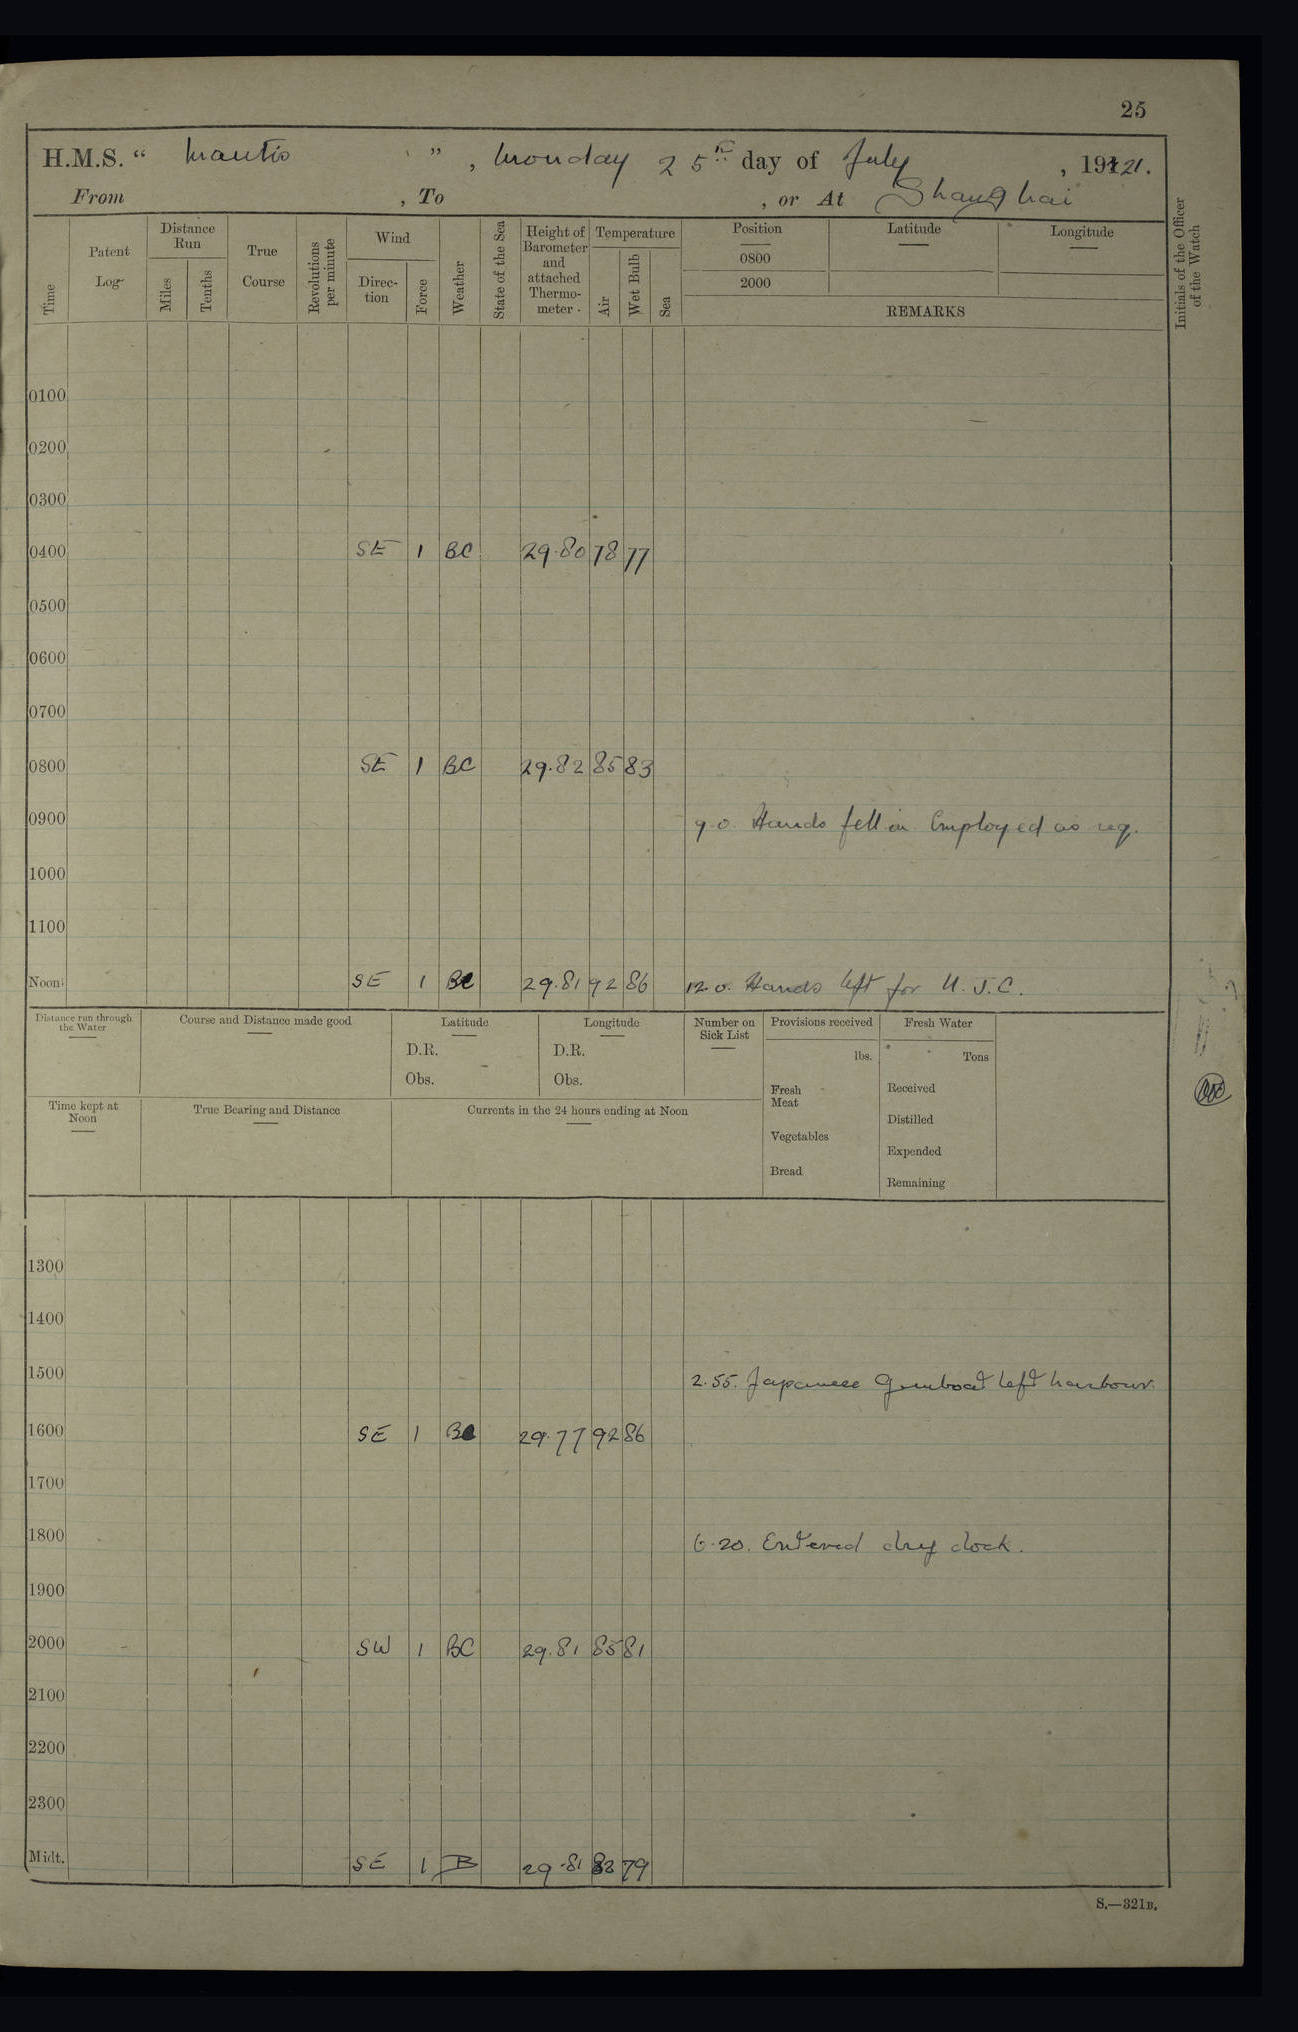 25
H.M.S. “ Mantis ” , Monday 25th day of July , 1921.
From , To , or At Shanghai
Time
Patent Log
Distance Run
Miles
Tenths
True Course
Revolutions per minute
Wind
Direc- tion
Force
Weather
State of the Sea
Height of Barometer and attached Thermo- meter
Temperature
Air
Wet Bulb
Sea
Position Latitude Longitude
0800
2000
REMARKS
Initials of the Officer of the Watch
0100
0200
0300
0400 SE 1 BC 29.80 78 77
0500
0600
0700
0800 SE 1 BC 29.82 85 83
0900 9.0. Hands fell in Employed as req.
1000
1100
Noon SE 1 BC 29.81 92 86 12.0. Hands left for U.J.C.
Distance run through the Water
Course and Distance made good
Latitude
D.R.
Obs.
Longitude
D.R.
Obs.
Number on Sick List
Provisions received
lbs.
Fresh Meat
Vegetables
Bread
Fresh Water
Tons
Received
Distilled
Expended
Remaining
Time kept at Noon
True Bearing and Distance
Currents in the 24 hours ending at Noon
1300
1400
1500 2.55. Japanese Gunboat left harbour.
1600 SE 1 BC 29.77 92 86
1700
1800 6.20. Entered dry dock.
1900
2000 SW 1 BC 29.81 85 81
2100
2200
2300
Midt. SE 1 B 29.81 82 79
S.—321B.